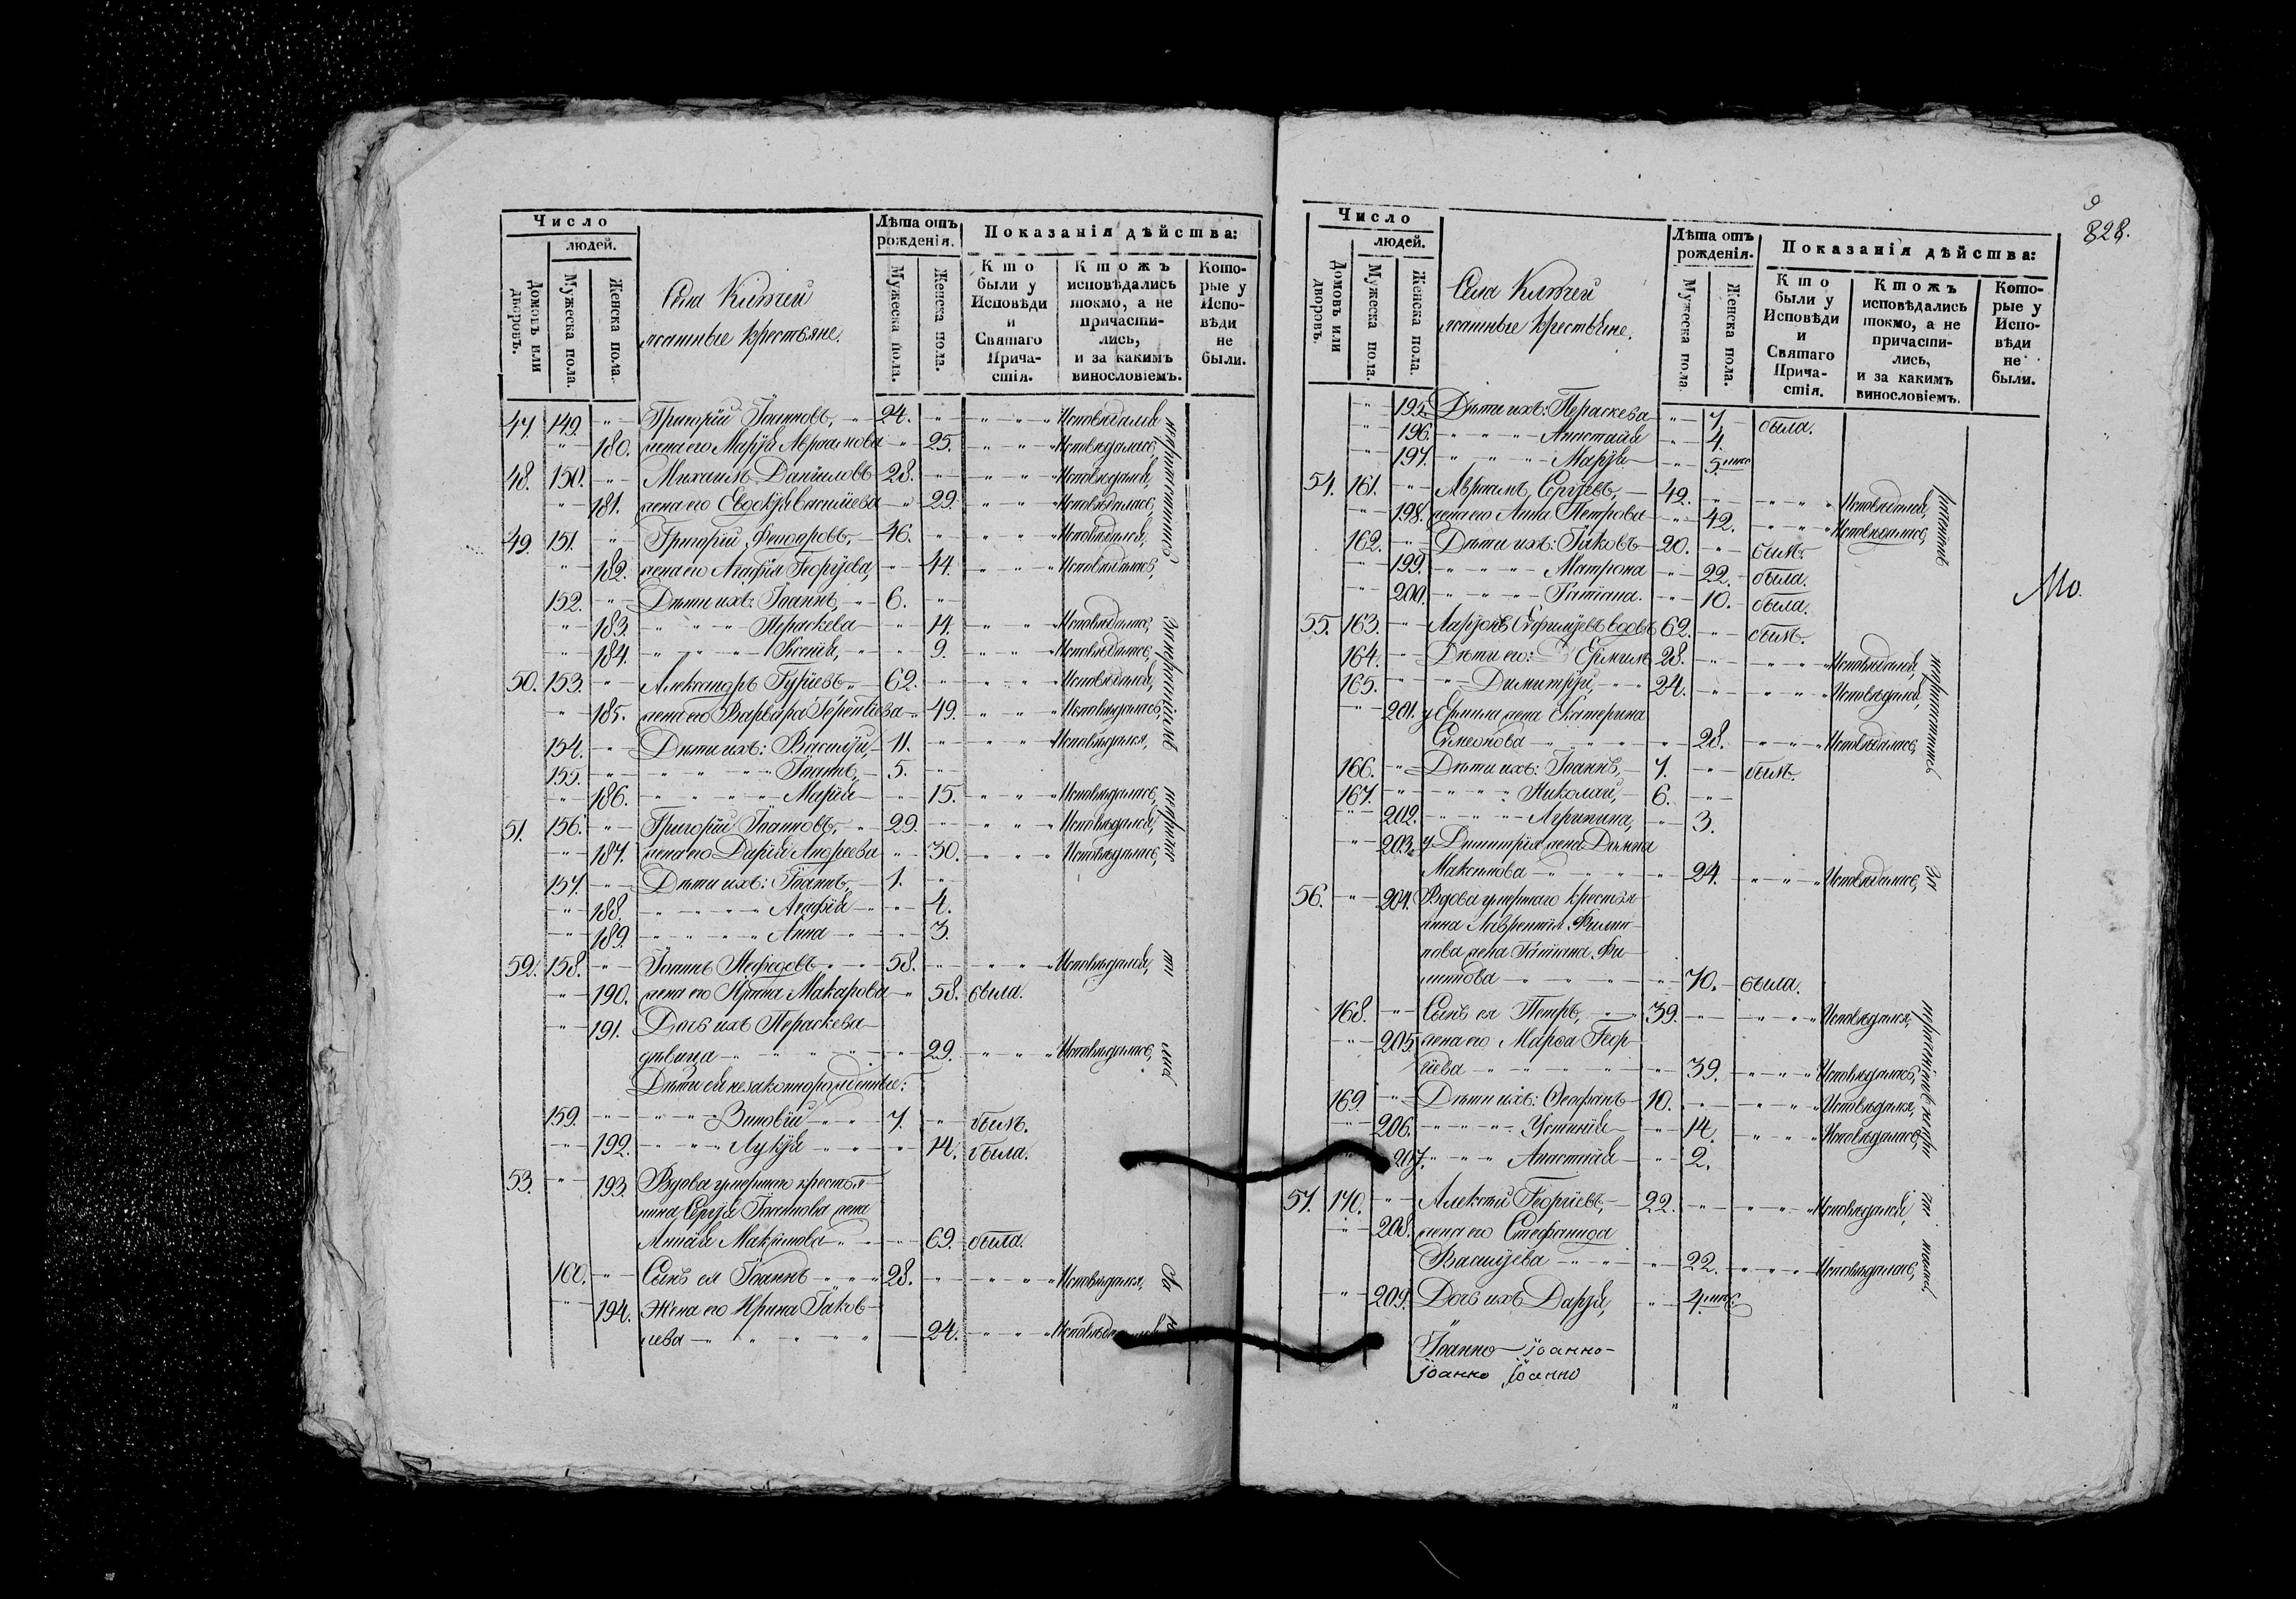 Число
людей.
Домовъ или дворовъ.
Мужеска пола.
Женска пола.
Села Ключей
ясашные крестьяне.
Лѣта отъ рожденія.
Мужеска пола.
Женска пола.
Показанія дѣйства:
Кто были у Исповѣди и Святаго Причастія.
Ктожъ исповѣдались токмо, а не причастились, и за какимъ винословіемъ.
Которые у Исповѣди не были.
47. 149. Григорій Іоанновъ, 24. Исповѣдался
180. жена его Марѳа Авраамова 25. Исповѣдалась,
48. 150. Михаилъ Даниловъ 28. Исповѣдался,
181. жена его Евдокія Васильева 29. Исповѣдалась,
49. 151. Григорій Феодоровъ, 46. Исповѣдался,
182. жена его Агафія Георгіева, 44. Исповѣдалась,
152. Дѣти ихъ: Іоаннъ, 6.
183. Параскева 14. Исповѣдалась,
184. Ксенія, 9. Исповѣдалась,
50. 153. Александръ Гурьевъ 62. Исповѣдался,
185. жена его Варвара Терентіева 49. Исповѣдалась,
154. Дѣти ихъ: Василій, 11. Исповѣдался,
155. Іоаннъ, 5.
186. Марія 15. Исповѣдалась,
51. 156. Григорій Іоанновъ, 29. Исповѣдался,
187. жена его Дарія Андреева 30. Исповѣдалась,
157. Дѣти ихъ: Іоаннъ, 1.
188. Агафія 4.
189. Анна 3.
52. 158. Іоаннъ Нефедовъ 58. Исповѣдался,
190. жена его Ирина Макарова 58. была.
191. Дочь ихъ Параскева
дѣвица 29. Исповѣдалась,
Дѣти ея незаконнорожденные:
159. Зиновій 7. былъ.
192. Лукія 14. была.
53. 193. Вдова умершаго крестья-
нина Сергія Іоаннова жена
Максимова 69. была.
160. Сынъ ея Іоаннъ 28. Исповѣдался,
194. Жена его Ирина Іаков-
лева 24.
828.
Число
людей.
Домовъ или дворовъ.
Мужеска пола.
Женска пола.
Села Ключей
ясашные крестьяне.
Лѣта отъ рожденія.
Мужеска пола.
Женска пола.
Показанія дѣйства:
Кто были у Исповѣди и Святаго Причастія.
Ктожъ исповѣдались токмо, а не причастились, и за какимъ винословіемъ.
Которые у Исповѣди не были.
195. Дѣти ихъ: Параскева 7. была.
196. Анастасія 4.
197. Марѳа 5.
54. 161. Авраамъ Сергіевъ, 42. Исповѣдался,
198. жена его Анна Петрова 42. Исповѣдалась,
162. Дѣти ихъ: Іаковъ 20. былъ
199. Матрона 22. была.
200. Татіана. 10. была.
55. 163. Ларіонъ Евфиміевъ вдовъ 62. былъ.
164. Дѣти его: Ермилъ 28. Исповѣдался,
165. Димитрій, 24. Исповѣдался,
201. у Ермила жена Екатерина
Симеонова 28. Исповѣдалась,
166. Дѣти ихъ: Іоаннъ, 7. былъ.
167. Николай, 6.
202. Агрипина, 3.
203. у Димитрія жена Домна
Максимова 24. Исповѣдалась,
56. 204. Вдова умершаго крестья-
нина Лаврентія Филип-
пова жена Татіана Фи-
липова 70. была.
168. Сынъ ея Петръ, 39. Исповѣдался,
205. жена его Марѳа Геор-
гіева 39. Исповѣдалась,
169. Дѣти ихъ: Стефанъ 10. Исповѣдался,
206. Устинія 14. Исповѣдалась,
207. Анастасія 2.
57. 170. Алексѣй Георгіевъ, 22. Исповѣдался,
208. жена его Стефанида
Васильева 22. Исповѣдалась,
209. Дочь ихъ Дарія, 4.
Іоанно іоанно
іоанно іоанно